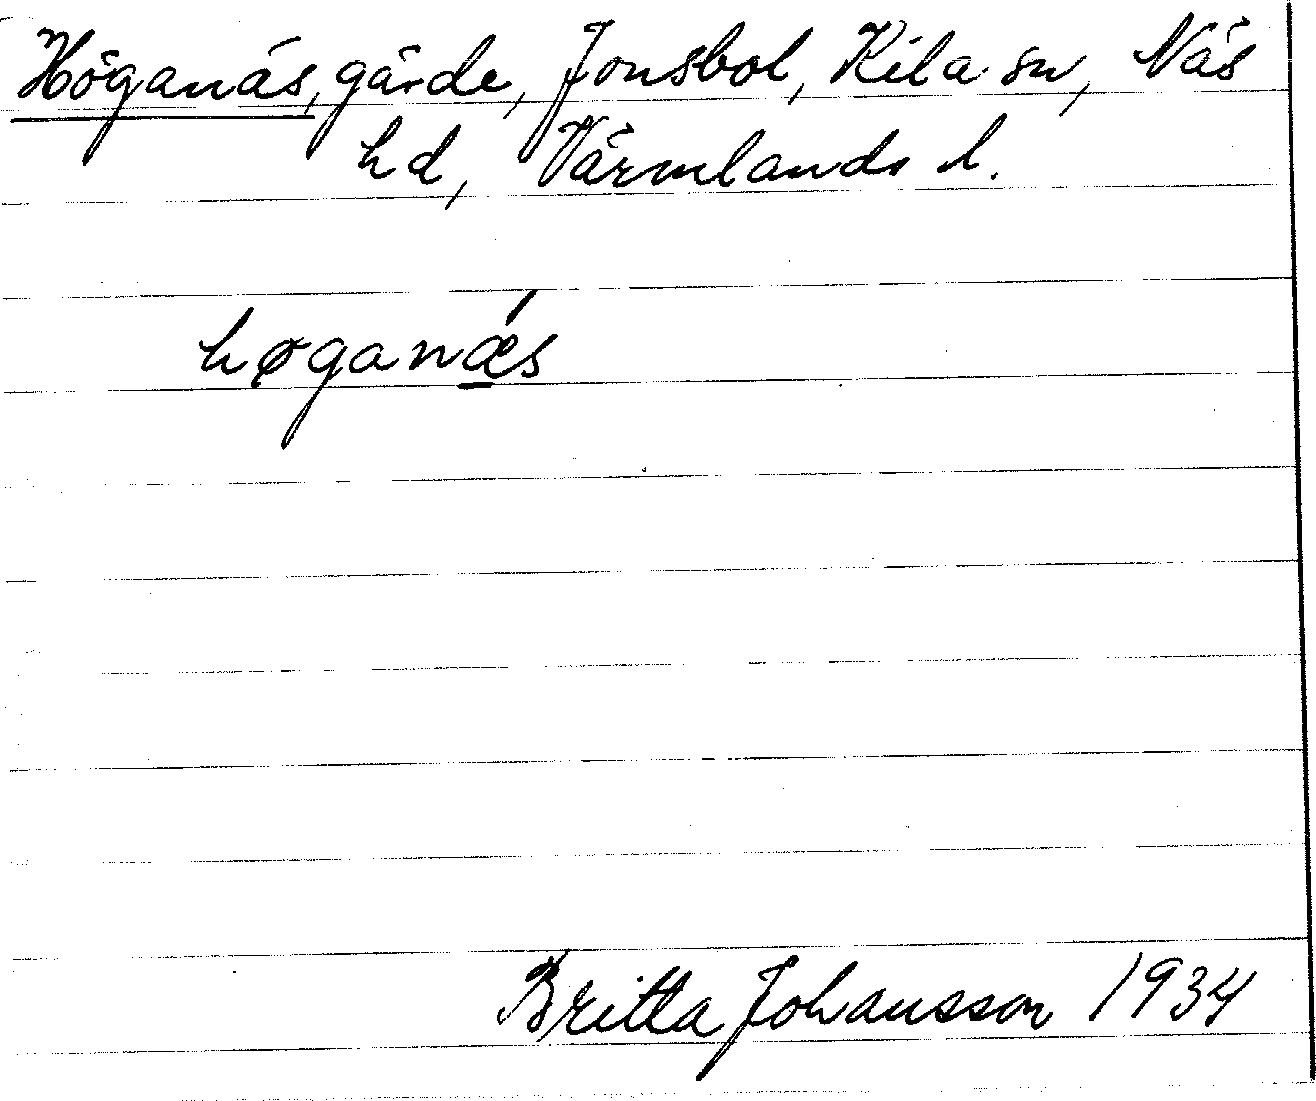 Höganäs, gärde, Jonsbol, Kila sn, Näs
hd, Värmlands l.
høganǽs
Britta Johansson 1934